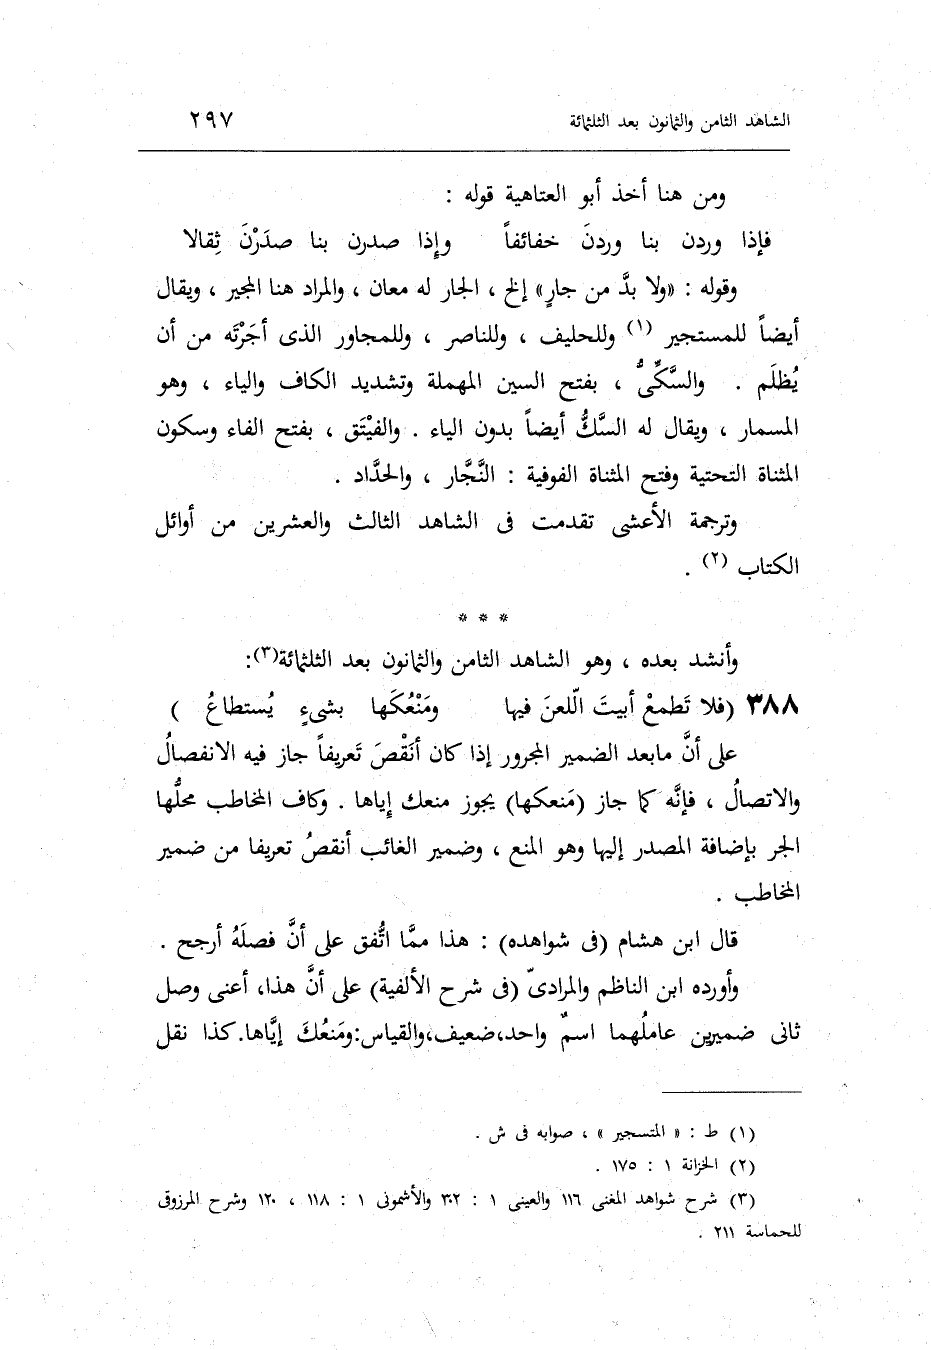 الشاهد الثامن والثمانون بعد الثلثمائة ٢٩٧
ومن هنا أخذ أبو العتاهية قوله :
فإذا وردن بنا وردنَ خفائفاً وإذا صدرن بنا صدَرْنَ ثِقالا
وقوله : «ولا بدَّ من جارٍ» إلخ ، الجار له معان ، والمراد هنا المجير ، ويقال
أيضاً للمستجير (١) وللحليف ، وللناصر ، وللمجاور الذى أجَرْتَه من أن
يُظلَم . والسَّكِّىُّ ، بفتح السين المهملة وتشديد الكاف والياء ، وهو
المسمار ، ويقال له السَّكُّ أيضاً بدون الياء . والفيْتَق ، بفتح الفاء وسكون
المثناة التحتية وفتح المثناة الفوفية : النَّجَّار ، والحدَّاد .
وترجمة الأعشى تقدمت فى الشاهد الثالث والعشرين من أوائل
الكتاب (٢) .
* * *
وأنشد بعده ، وهو الشاهد الثامن والثمانون بعد الثلثمائة(٣):
٣٨٨ (فلا تَطمعْ أبيتَ الّلعنَ فيها ومَنْعُكَها بشىءٍ يُستطاعُ )
على أنَّ مابعد الضمير المجرور إذا كان أنَقْصَ تَعريفاً جاز فيه الانفصالُ
والاتصالُ ، فإنَّه كما جاز (مَنعكها) يجوز منعك إياها . وكاف المخاطب محلُّها
الجر بإضافة المصدر إليها وهو المنع ، وضمير الغائب أنقصُ تعريفا من ضمير
المخاطب .
قال ابن هشام (فى شواهده) : هذا ممَّا اتُّفق على أنَّ فصلَهُ أرجح .
وأورده ابن الناظم والمرادىّ (فى شرح الألفية) على أنَّ هذا، أعنى وصل
ثانى ضميرين عاملُهما اسمٌ واحد،ضعيف،والقياس:ومَنعُكَ إيَّاها.كذا نقل
(١) ط : « المتسجير » ، صوابه فى ش .
(٢) الخزانة ١ : ١٧٥ .
(٣) شرح شواهد المغنى ١١٦ والعينى ١ : ٣٠٢ والأشمونى ١ : ١١٨ ، ١٢٠ وشرح المرزوقى
للحماسة ٢١١ .